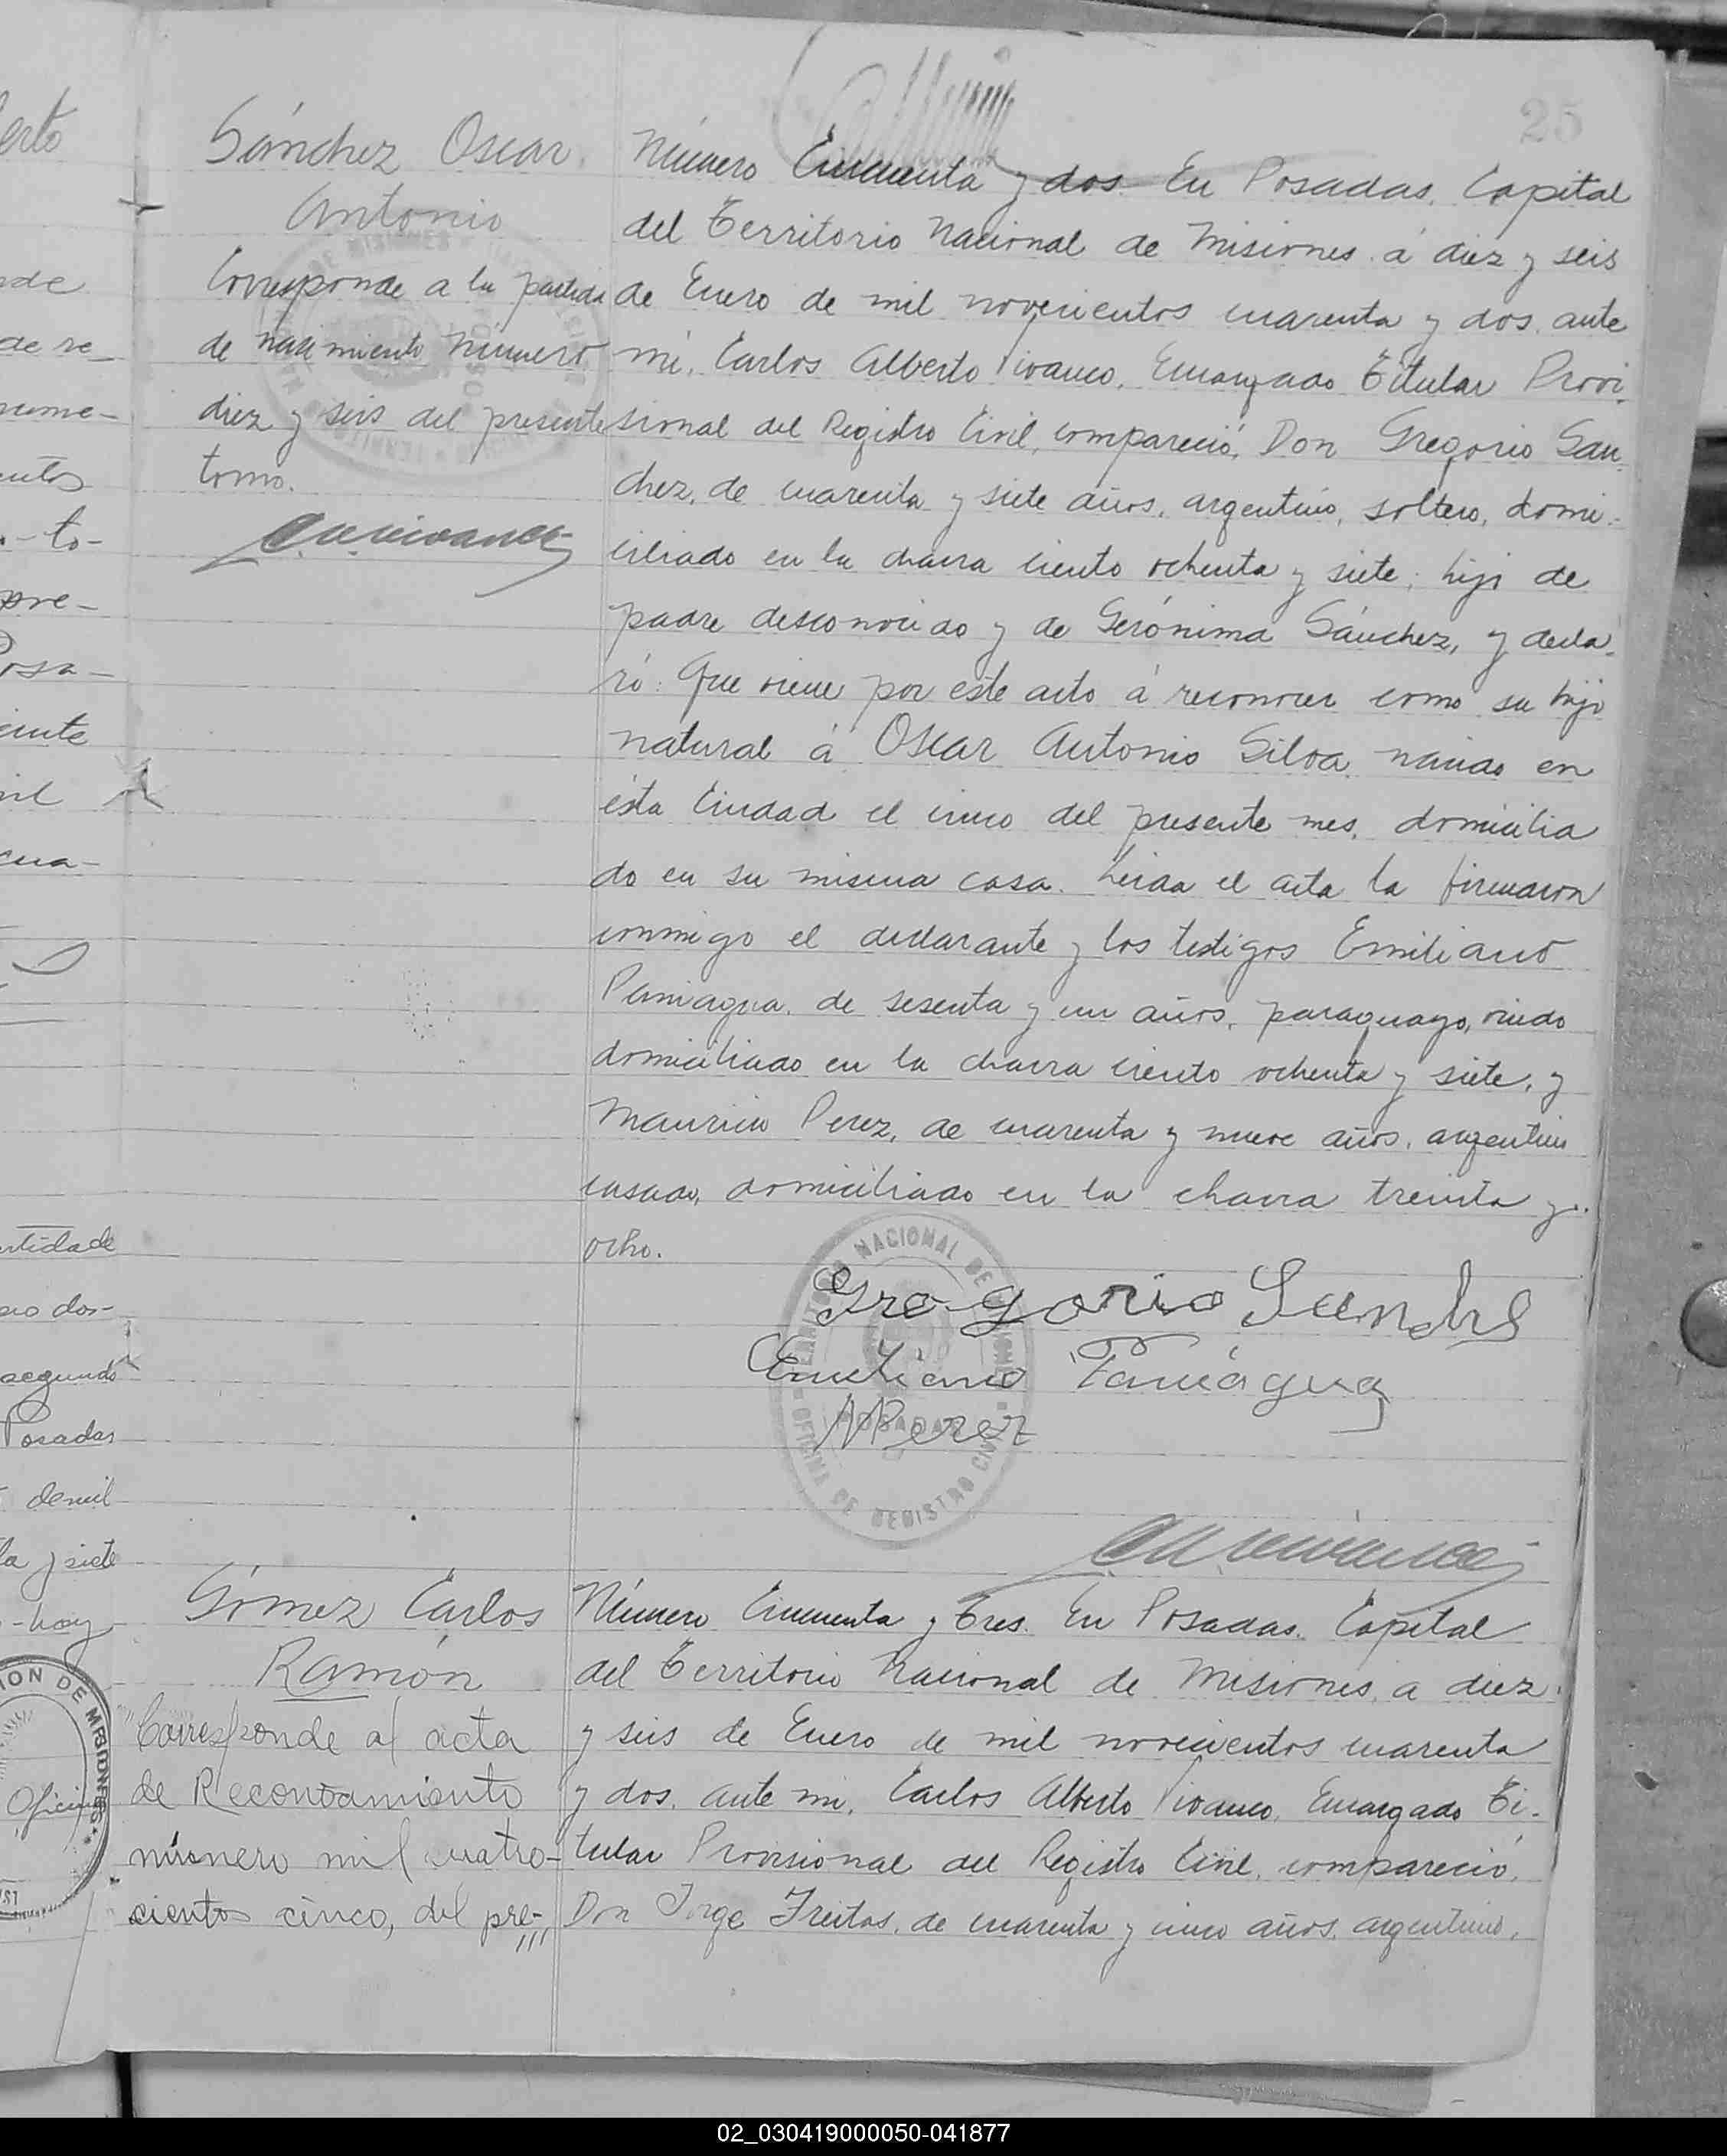 25
Sánchez Oscar
Antonio
Corresponde a la partida
de nacimiento Número
diez y seis del presente
tomo.
Número Cincuenta y dos. En Posadas, Capital
del Territorio Nacional de Misiones á diez y seis
de Enero de mil novecientos cuarenta y dos, ante
mi, Carlos Alberto Vivanco, Encargado Titular Provi-
sional del Registro Civil, compareció, Don Gregorio San-
chez, de cuarenta y siete años, argentino, soltero, domi-
ciliado en la chacra ciento ochenta y siete; hijo de
padre desconocido y de Gerónima Sánchez, y decla-
ró: Que viene por este acto á reconocer como su hijo
natural á Oscar Antonio Silva, nacido en
ésta Ciudad el cinco del presente mes, domicilia
do en su misma casa. Leida el acta la firmaron
conmigo el declarante y los testigos Emiliano
Paniagua, de sesenta y un años, paraguayo, viudo
domiciliado en la chacra ciento ochenta y siete, y
Mauricio Perez, de cuarenta y nueve años, argentino
casado, domiciliado en la chacra treinta y
ocho.
TERRITORIO NACIONAL DE MISIONES
POSADAS
OFICINA DE REGISTRO CIVIL
Gregorio Sanchs
Emiliano Paniágua
MPerez
Gómez Carlos
Ramón
Corresponde al acta
de Reconocamiento
número mil cuatro-
cientos cinco, del pre-
Número Cincuenta y Tres. En Posadas, Capital
del Territorio Nacional de Misiones, a diez
y seis de Enero de mil novecientos cuarenta
y dos, ante mi, Carlos Alberto Vivanco, Encargado Ti-
tular Provisional del Registro Civil, compareció,
Don Jorge Freitas, de cuarenta y cinco años, argentino,
erto
de re
nume-
to-
pre-
osa-
cua-
segundo
Posadas
demil
la y siete
-hoy
ION DE MISIONES
Oficina
02_030419000050-041877